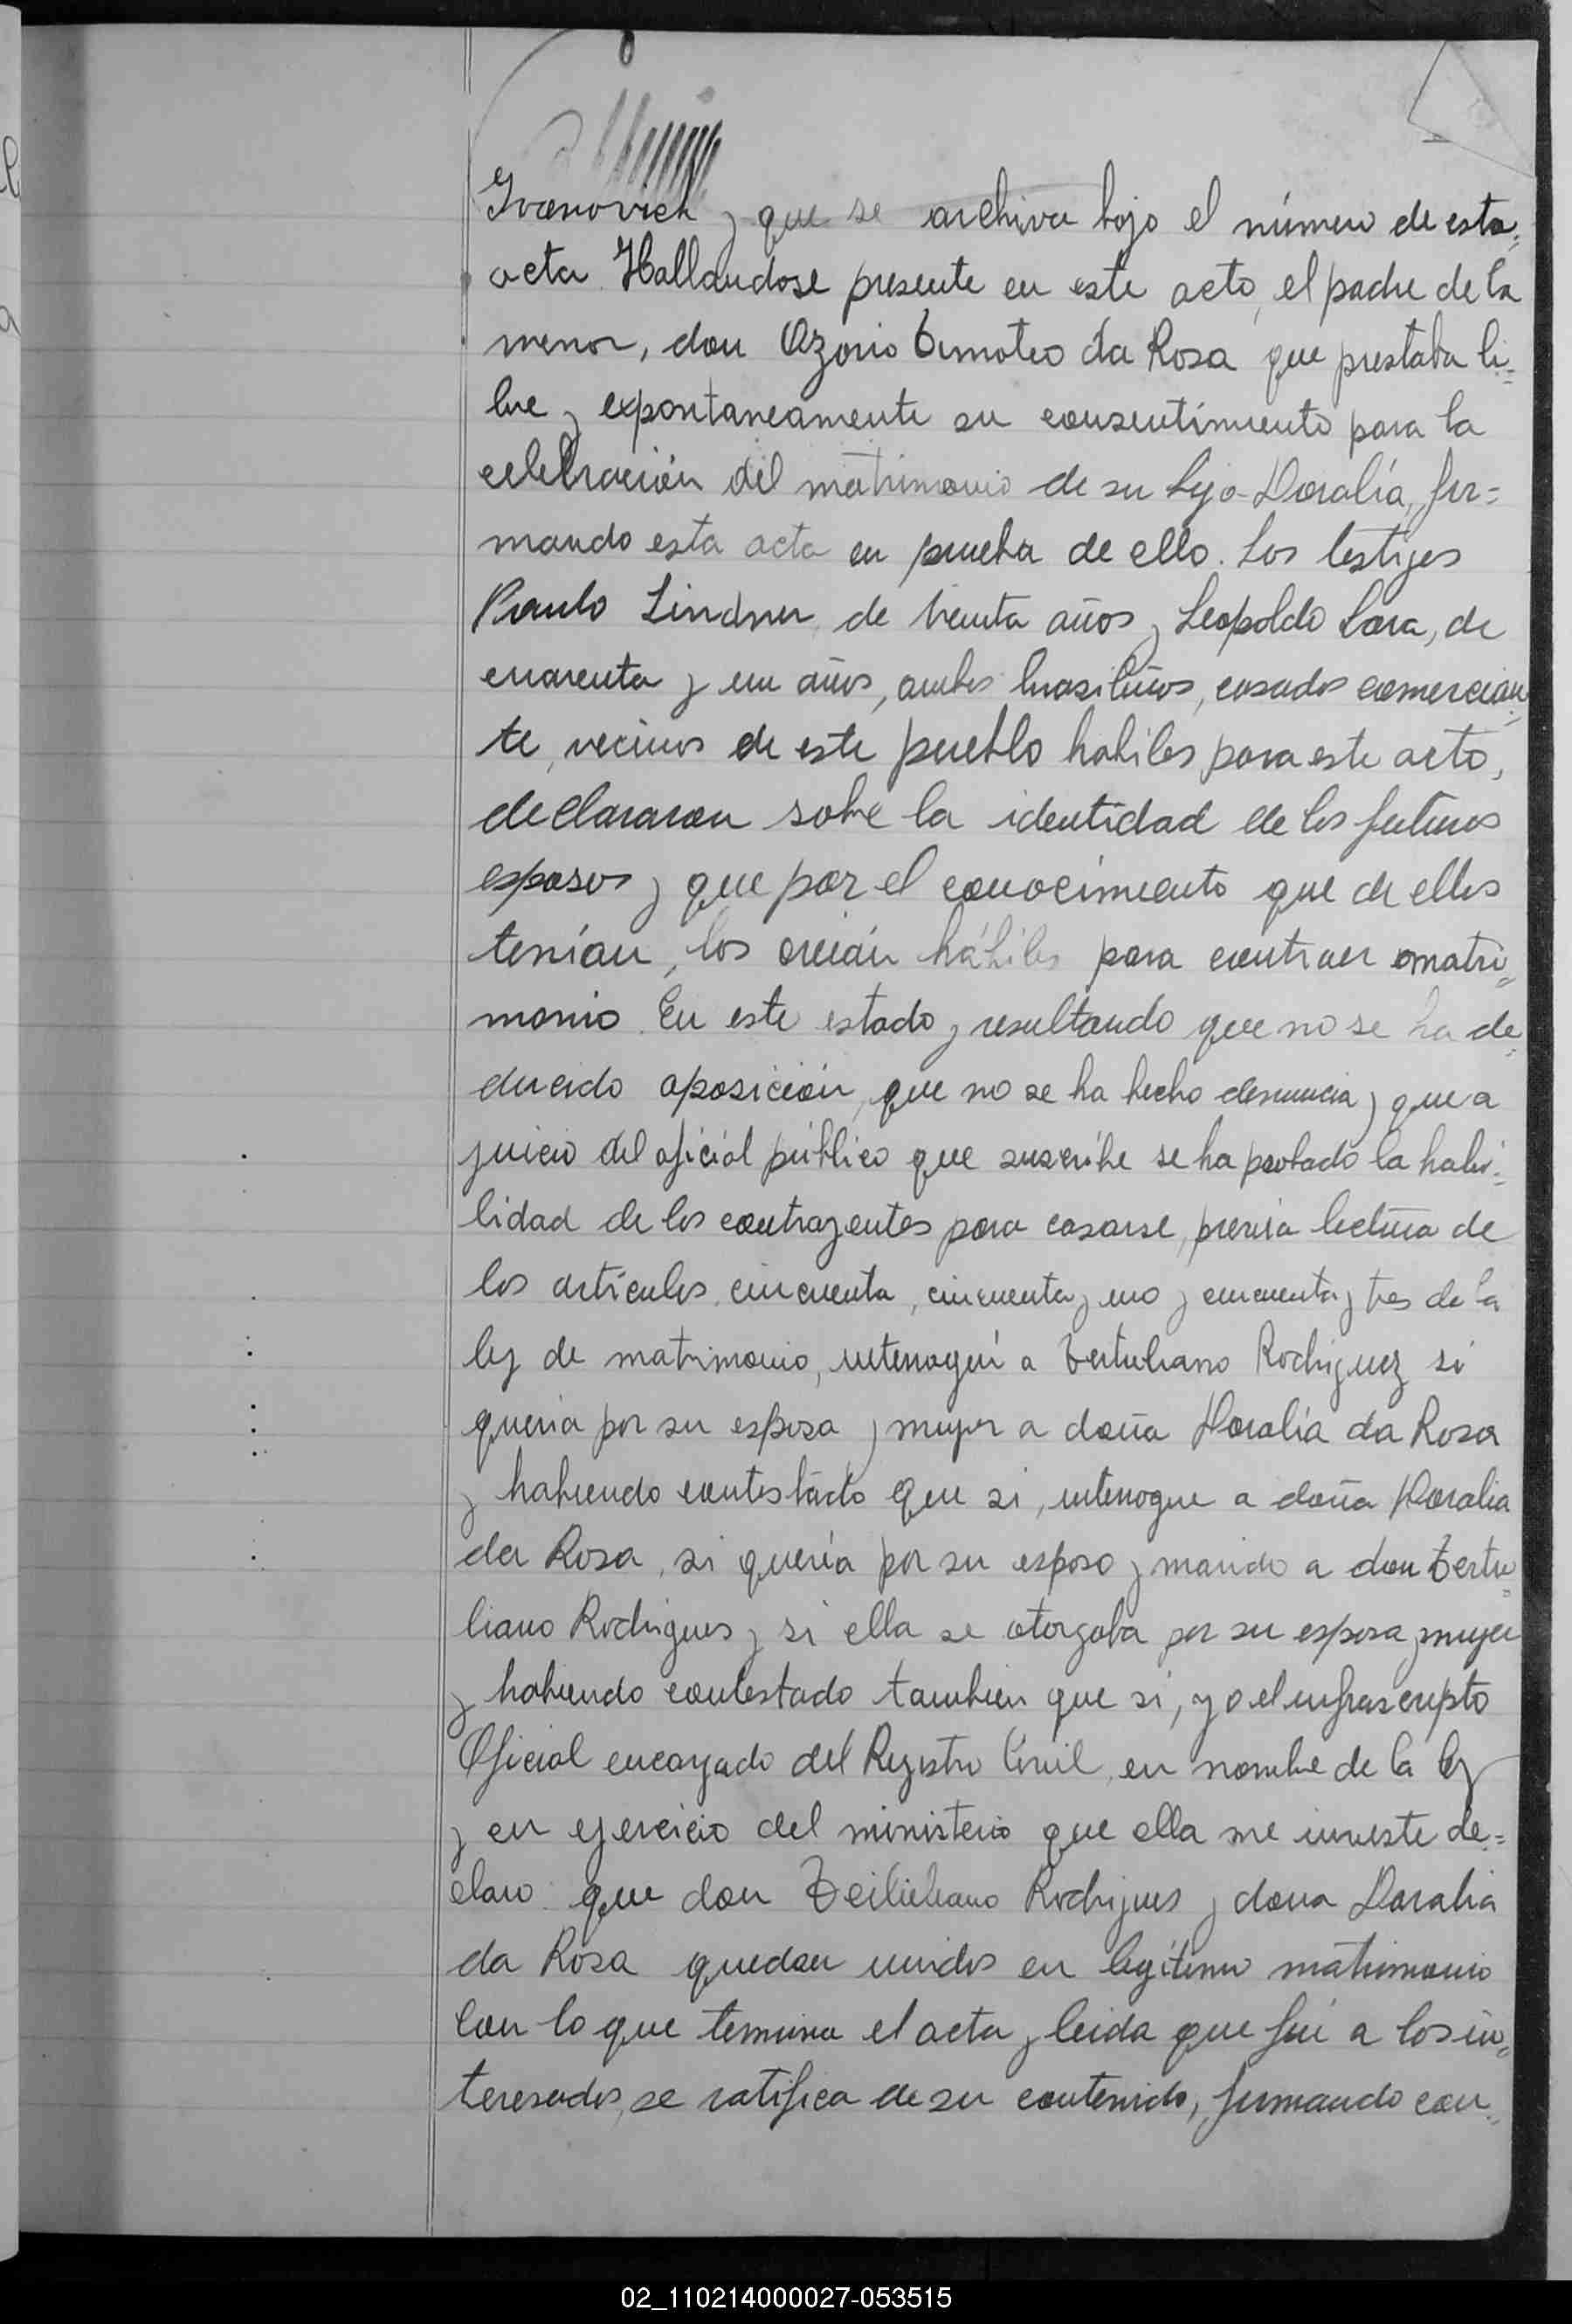 Ivanovich y que se archiva bajo el número de esta=
acta. Hallandose presente en este acto, el padre de la
menor, don Ozorio Timoteo da Rosa que prestaba li=
bre y expontaneamente su consentimiento para la
celebración del matrimonio de su hija Doralía, fir=
mando esta acta en prueba de ello. Los testigos
Paulo Lindner de treinta años y Leopoldo Lara, de
cuarenta y un años, ambos brasileños, casados comercian=
te, vecinos de este pueblo habiles para este acto,
declararon sobre la identidad de los futuros
esposos y que por el conocimiento que de ellos
tenían, los creían hábiles para contraer matri=
monio. En este estado y resultando que no se ha de=
ducido oposición, que no se ha hecho denuncia y que a
juicio del oficial público que suscribe se ha probado la habi=
lidad de los contrayentes para casarse, previa lectura de
los artículos cincuenta, cincuenta y uno y cincuenta y tres de la
ley de matrimonio, interrogué a Tertuliano Rodriguez si
quería por su esposa y mujer a doña Doralía da Rosa
y habiendo contestado que si, interrogue a doña Doralia
da Rosa, si quería por su esposo y marido a don Tertu=
liano Rodrigues y si ella se otorgaba por su esposa y mujer
y habiendo contestado tambien que si, yo el infrascripto
Oficial encargado del Registro Civil, en nombre de la ley
y en ejercicio del ministerio que ella me inviste de=
claro que don Tertuliano Rodrigues y dona Doralia
da Rosa quedan unidos en legítimo matrimonio
con lo que termina el acta y leida que fué a los in=
teresados, se ratifica de su contenido, firmando con=
02_110214000027-053515